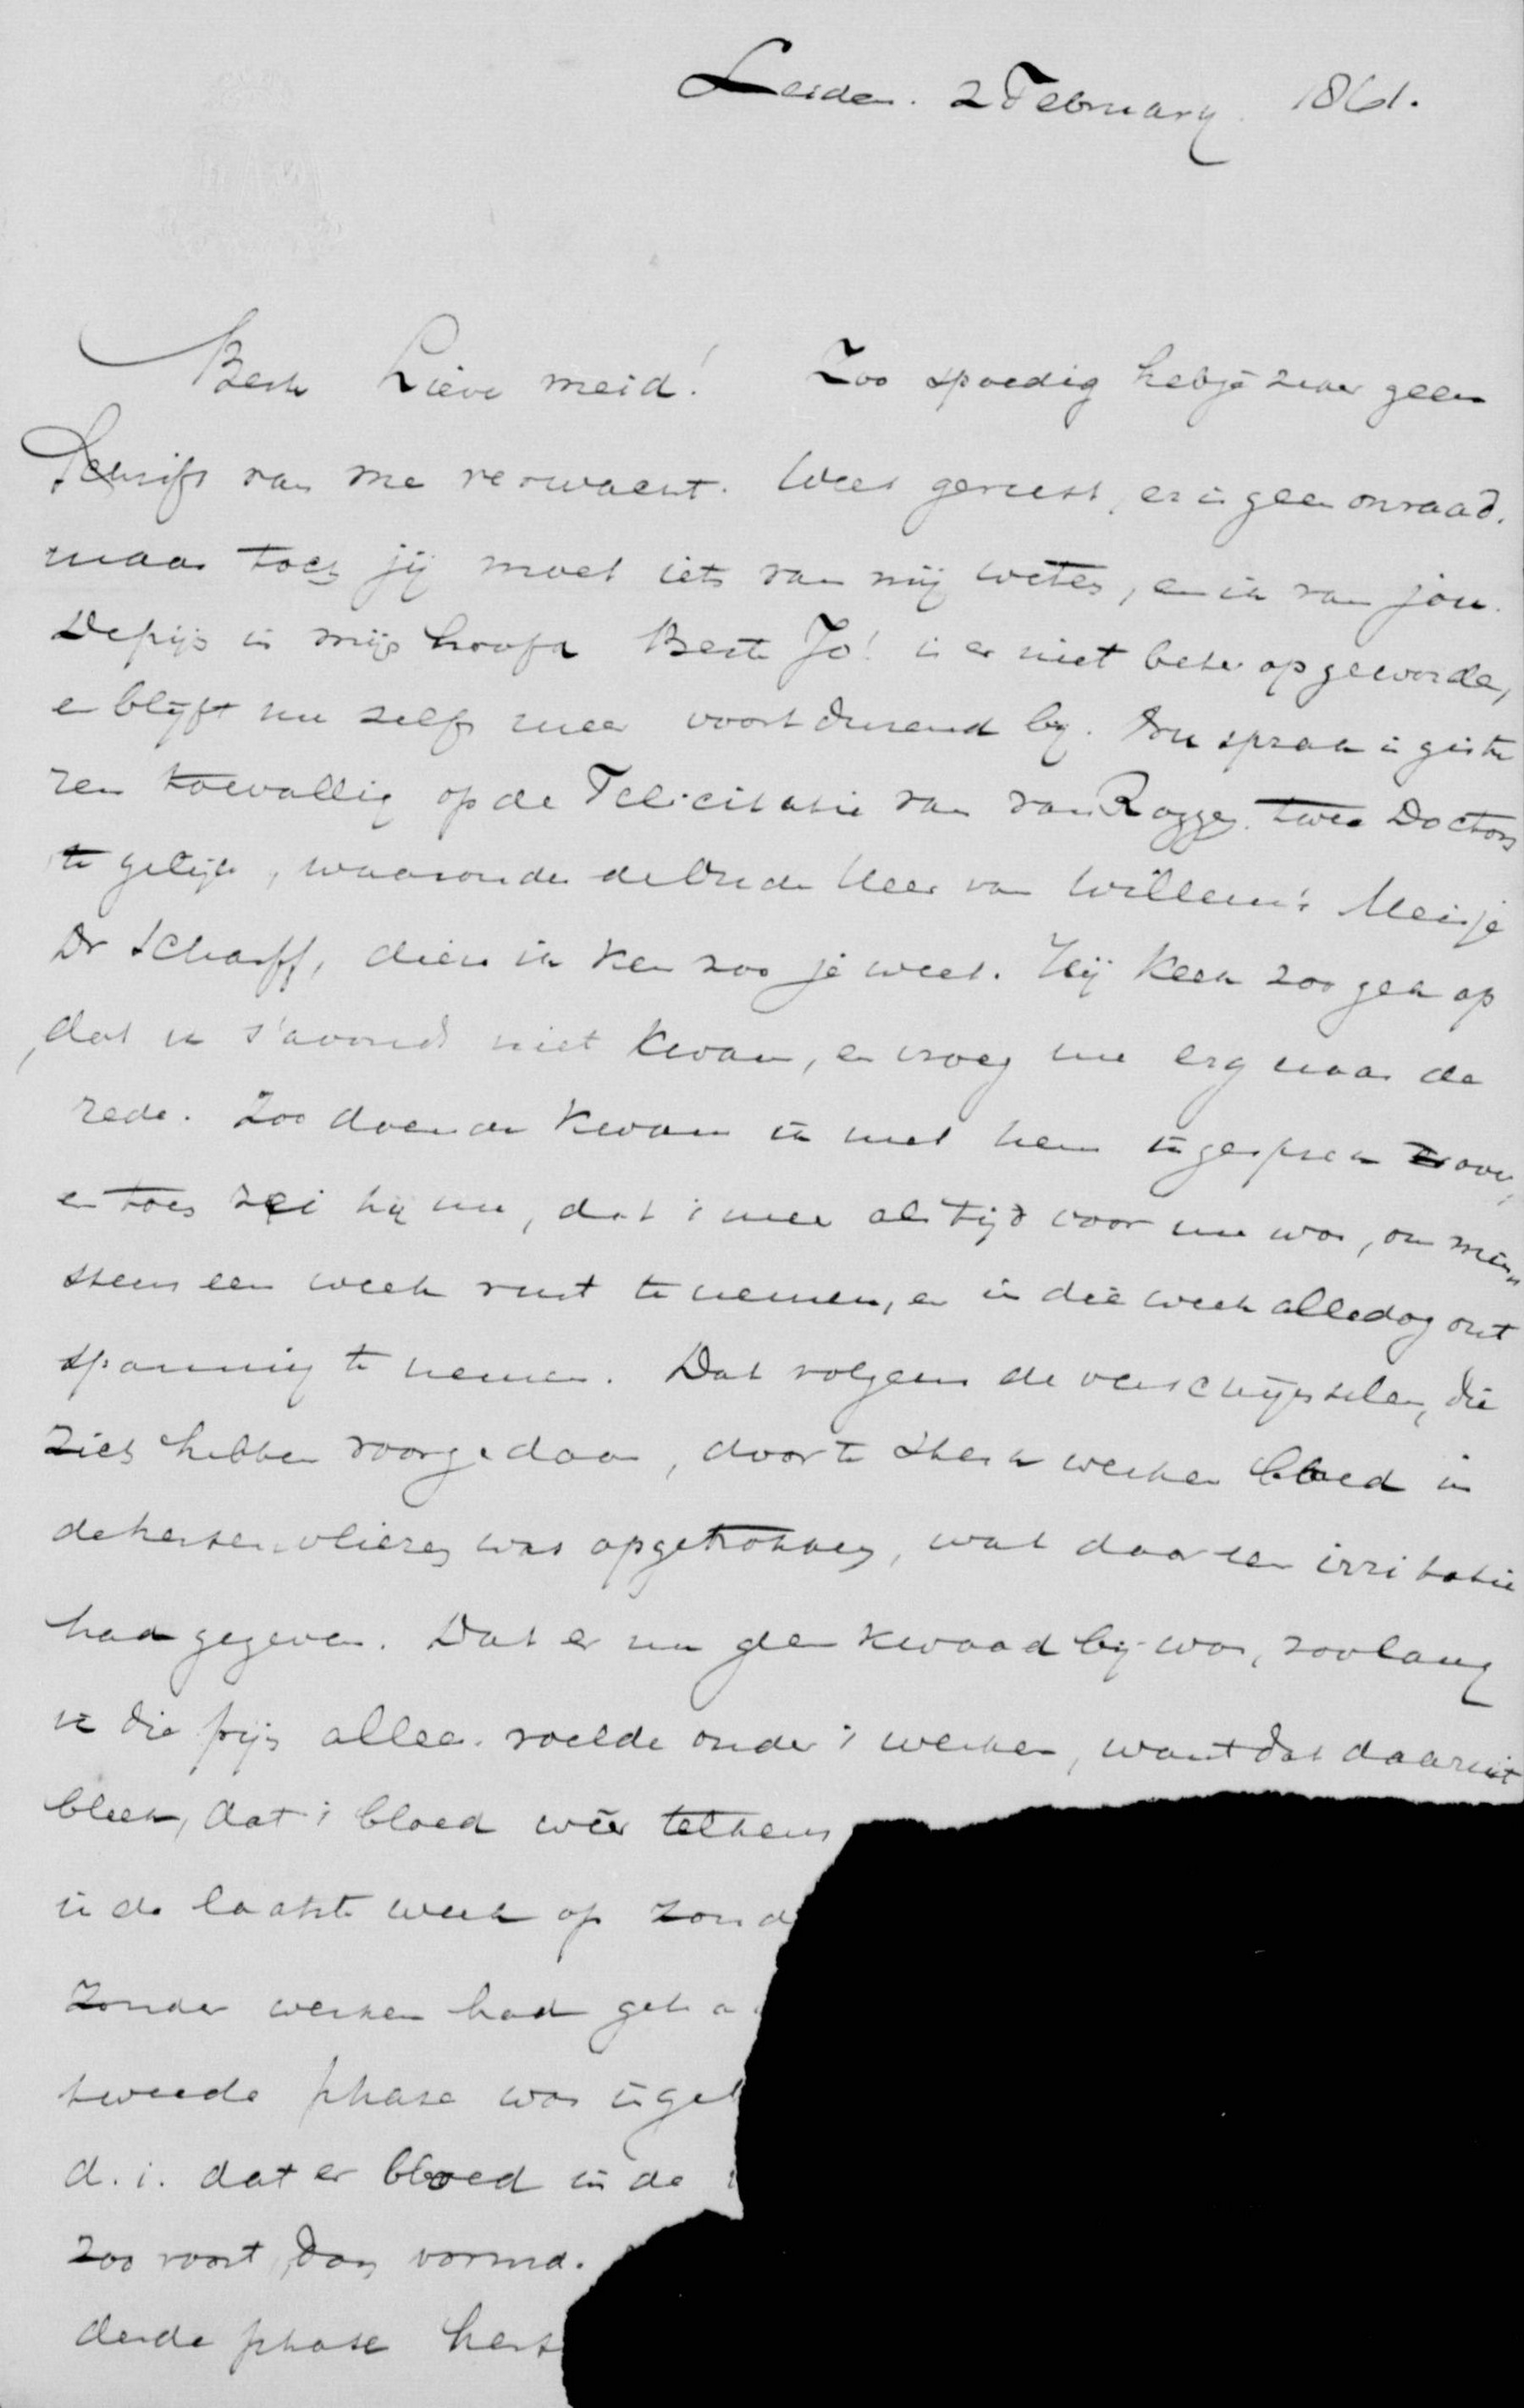 Leiden. 2 February 1861.
Beste Lieve meid! Zoo spoedig heb je zeker geen
Schrift van me verwacht. Wees gerust, er is geen onraad.
maar toch jij moet iets van mij weten, en ik van jou.
De pijn in mijn hoofd Beste Jo! is er niet beter op geworden,
en blijft nu zelfs meer voortdurend bij. Nu sprak ik giste
ren toevallig op de Felicitatie van van Rogge twee Doctors
te gelijk, waaronder de Oude Heer van Willem's Meisje
Dr Scharff, dien ik ken zoo je weet. Hij keek zoo gek op
dat ik s'avonds niet kwam, en vroeg me erg naar de
rede. Zoo doende kwam ik met hem in gesprek er over,
en toen zei hij me, dat 't meer als tijd voor me was, om min
stens een week rust te nemen, en in die week alledag ont
spanning te nemen. Dat volgens de verschijnselen, die
zich hebben voorgedaan, door te sterk werken bloed in
de hersenvliezen was opgetrokken, wat daar een irritatie
had gegeven. Dat er nu geen kwaad bij was, zoolang
ik die pijn alleen voelde onder 't werken, want dat daaruit
bleek, dat 't bloed wêer telkens
in de laatste week op zond
zonder werken had geha
tweede phase was inget
d. i. dat er bloed in de
zoo voort, dan vormd.
derde phase hers